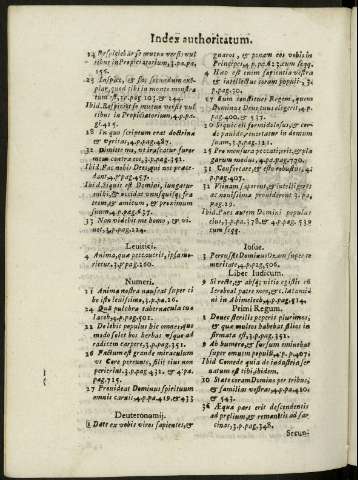 Index authoritatum.
24 Respiciebāt se mutuo versis vul
tibus in Propitiatorium, 3.pa.pa,
156.
25 Inspice, & fac secundum exē-
plar, quod tibi in monte monstra
tum est, 3.pag. 105. & 244.
Ibid. Respiciāt se mutuo versis vul
tibus in Propitiatorium, 4.p.pa
gi.425.
28 In quo scriptum erat doctrina
& veritas, 4.p.pag.487.
32 Dimitte me, vt irascatur furor
meus contra eos, 3.p.pag.351.
Ibid. Fac nobis Deos, qui nos praece-
dant, 4.p.pag.457.
Ibid. Siquis est Domini, iungatur
mihi, & occidat vnusquisq; fra
trem, & amicum, & proximum
suum, 4.p.pag.637.
33 Non videbit me homo, & vi-
uet, 3.p.pag.224.
Leuitici.
4 Anima, quae peccauerit, ipsa mo-
rietur, 3.p.pag.260.
Numeri.
21 Anima nostra nauseat super ci
bo isto leuissimo, 3.p.pa.26.
24 Quā pulchra tabernacula tua
Iacob, 4.p.pag.501.
22 Delebit populus hic omnes, quo
modo solet bos herbas vsque ad
radicem carpere, 3.p.pag.351.
26 Factum est grande miraculum
vt Core pereunte, filij eius non
perierint. 3.p.pag.431. & 4.pa.
pag.715.
27 Prouideat Dominus spirituum
omnis carnis, 4.p.pa.419. & 433
Deuteronomij.
1 Date ex vobis viros sapientes, &
gnaros, & ponam eos vobis in
Principes, 4.p.pa.823. cum seqq.
4 Haec est enim sapientia vestra
& intellectus coram populis, 3.
p.pag.30.
17 Eum constitues Regem, quem
Dominus Deus tuus elegerit, 4.p.
pag.400. & 537.
20 Siquis est formidolosus, & cor-
de pauido, reuertatur in domum
suam, 3.p.pag.121.
25 Pro mensura peccati erit, & pla
garum modus, 4.p.pag.770.
31 Confortare, & esto robustus, 4.
p.pag.407.
32 Vtinam saperent, & intelligerēt
ac nouissima prouiderent, 3.p.
pag.19.
Ibid. Pars autem Domini populus
eius, 3.p.pa.378, & 4.p.pag. 539
cum seqq.
Iosue.
3 Peruasit Dominus Deum super te
meritate, 4.p.pag.506.
Liber Iudicum.
9 Si recte, & absq; vitio egistis cū
Ierobaal patre meo, & c. laetami
ni in Abimelech, 4.p.pag.814.
Primi Regum.
2 Donec sterilis peperit plurimos,
& quae multos habebat filios in
firmata est, 3.p.pag.352.
9 Ab humero, & sursum eminebat
super omnem populū, 4.p.p.407.
Ibid. Comede quia de industria ser
uatum est tibi, ibidem.
10 State coram Domino per tribus,
& familias vestras, 4.p.pa.420.
& 543.
36 Aequa pars erit descendentis
ad praelium, & remanētis ad sar-
cinas, 3.p.pag.348.
Secun-